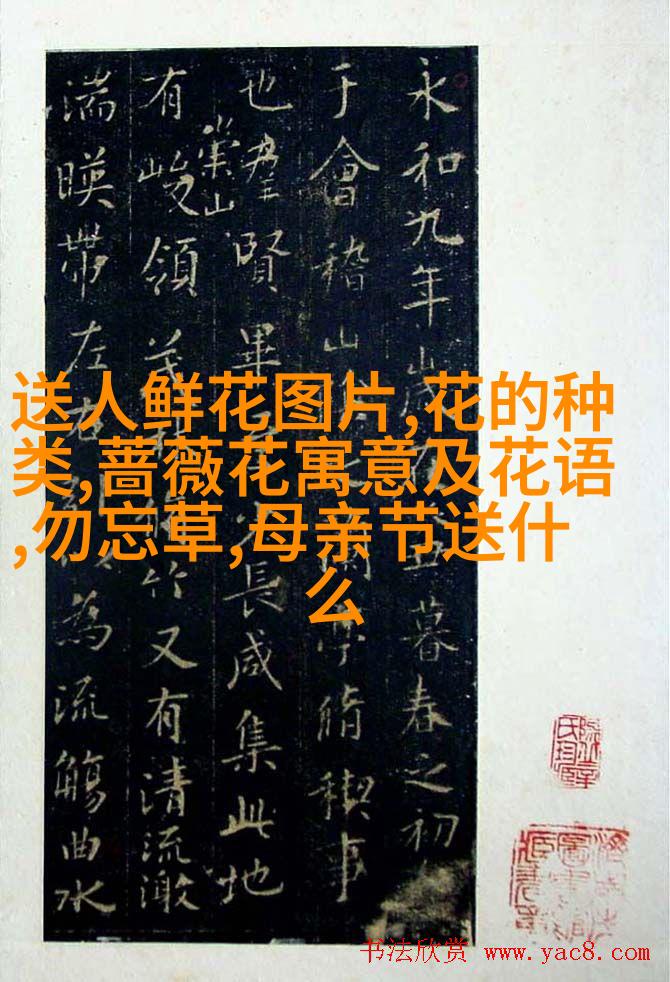 永和九年歲在丑暮春之初
于會稽山蘭亭脩稧事
也羣賢畢長咸集此地
崇山
有峻領茂竹又有清流激
湍暎帶左右為流觴曲水
送人鲜花图片,花的种
类,蔷薇花寓意及花语
,勿忘草,母亲节送什
么
书法欣赏 www.yac8.com